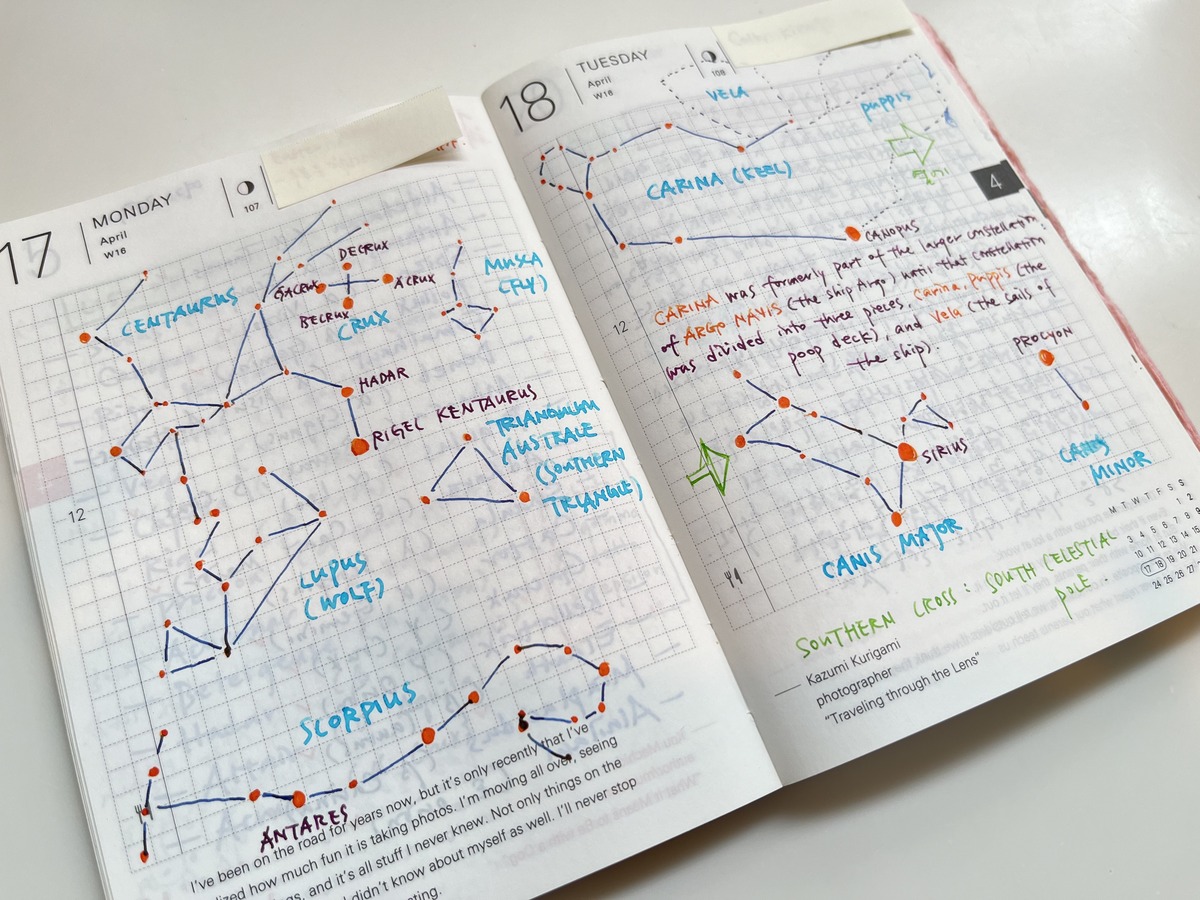 17
MONDAY
April
W16
107
CENTAURUS
DECRUX
GACRUX
ACRUX
BECRUX
CRUX
MUSCA
(FLY)
HADAR
RIGEL KENTAURUS
TRIANGULUM
AUSTRALE
(SOUTHERN
TRIANGLE)
12
LUPUS
(WOLF)
SCORPIUS
ANTARES
I've been on the road for years now, but it's only recently that I've
lized how much fun it is taking photos. I'm moving all over, seeing
gs, and it's all stuff I never knew. Not only things on the
I didn't know about myself as well. I'll never stop
ting.
18
TUESDAY
April
W16
108
VELA
puppis
CARINA (KEEL)
4
CANOPUS
CARINA was formerly part of the larger constellation
of ARGO NAVIS (the ship Argo) until that constellation
was divided into three pieces, Carina, Puppis (the
poop deck), and Vela (the sails of
the ship).
12
PROCYON
SIRIUS
CANIS
MINOR
CANIS MAJOR
SOUTHERN CROSS: SOUTH CELESTIAL
POLE.
M T W T F S S
1 2
3 4 5 6 7 8 9
10 11 12 13 14 15
17 18 19 20 21
24 25 26 27
Kazumi Kurigami
photographer
"Traveling through the Lens"